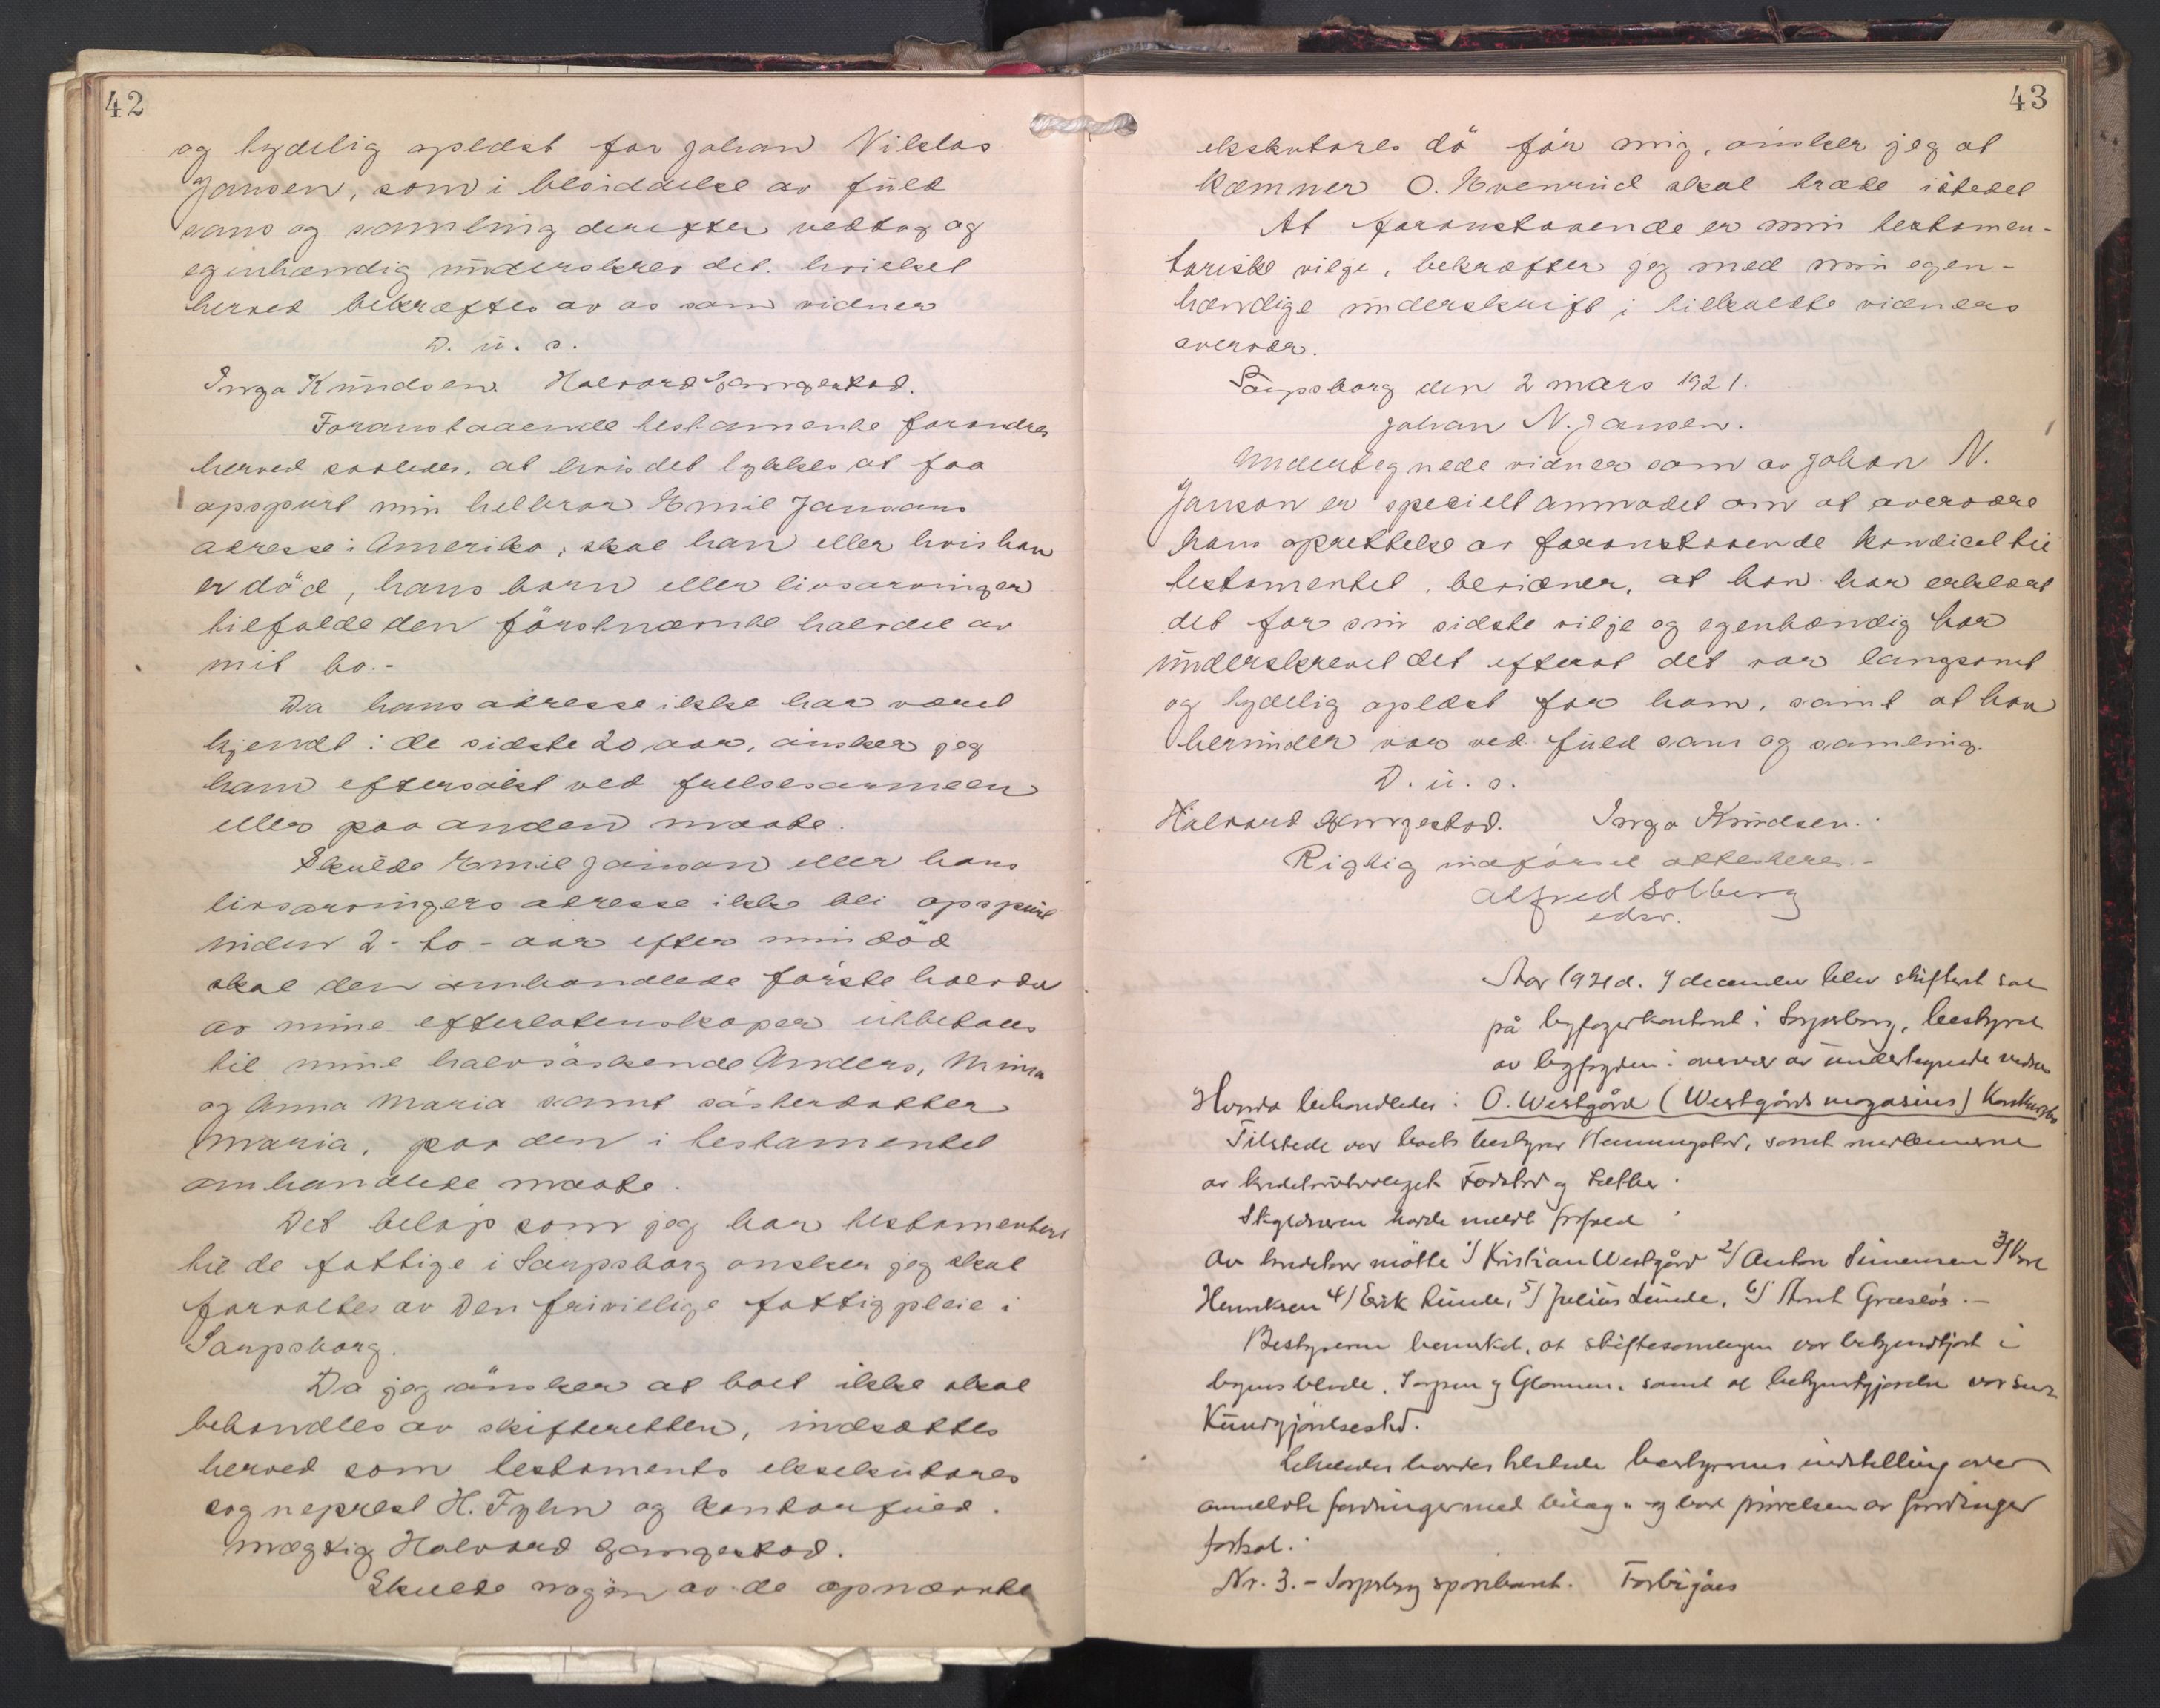 42
og tydelig oplæst for Johan Niklas
Jansen, som i besiddelse av fuld
sans og samling derefter vedtog og
egenhændig underskrev det. hvilket
herved bekræftes av os som vidner
D. u. s.
Inga Knudsen. Halvard Gangestad.
Foranstaaende testamente forandres
herved saaledes, at hvis det lykkes at faa
opspurt min helbror Emil Jansans
adresse i Amerika, skal han eller hvis han
er död, hans barn eller livsarvinger
tilfalde den förstnævnte halvdel av
mit bo.-
Da hans adresse ikke har været
kjendt i de sidste 20 aar, önsker jeg
ham eftersökt ved frelsesarmeen
eller paa anden maate.
Skulde Emil Janson eller hans
livsarvingers adresse ikke bli opspurt
inden 2- to - aar efter min död
skal den omhandlede förste halvdel
av mine efterlatenskaper utbetales
til mine halvsöskende Anders, Mina
og Anna Maria samt sösterdatter
Maria, paa den i testamentet
omhandlede maate.
Det beløp som jeg har testamentert
til de fattige i Sarpsborg onsker jeg skal
forvaltes av Den frivillige fattigpleie i
Sarpsborg.
Da jeg önsker at boet ikke skal
behandles av skifteretten, indsættes
herved som testaments eksekutores
sogneprest H. Fyhn og kontorfuld.
mægtig Halvard Gangestad.
Skulde nogen av de opnævnte
43
eksekutores dö för mig, önsker jeg at
kæmner O. Evenrud skal træde istedet
At foranstaaende er min testamen-
tariske vilje, bekræfter jeg med min egen-
hændige underskrift i tilkaldte vidners
overvær.
Sarpsborg den 2 mars 1921.
Johan N. Jansen.
Undertegnede vidner som av Johan N.
Janson er specielt anmodet om at overvære
hans oprettelse av foranstaaende kondicel til
testamentet, bevidner, at han har erklært
det for sin sidste vilje og egenhændig har
underskrevet det efterat det var langsomt
og tydelig oplæst for ham, samt at han
herunder var ved fuld sans og samling.
D. u. s.
Halvard Gangestad. Inga Knudsen.
Rigtig indførsel attesteres.-
Alfred Solberg
edsv.
Aar 1921 d. 9 december blev skifteret sat
på byfogdkontoret i Sarpsborg, bestyret
av byfogden i overvær av undertegnede vidner
Hvorda behandledes: O. Westgård (Westgårds magasins) Konkursbo
Tilstede var boets bestyrer Hemmingstad, samt medlemmerne
av kreditorutvalget Fodstad og Sæther.
Skyldneren hadde meldt forfald
Av kreditorer mötte 1/ Kristian Westgård 2/ Anton Simensen 3/
Henriksen 4/ Erik Lunde, 5/ Julius Lunde, 6/ Arnt Græslös.-
Bestyreren bemerket, at skiftesamlingen var bekjendtgjort i
byens blade, Sarpen og Glommen, samt at bekjentgjørelse var
Kundgjörelsestid.
Saaledes bestyrerens indstilling over
anmeldte fordringer med bilag og blev prövelsen av fordringer
foretat.
Nr. 3. - Sarpsborg sparebank. Forbigåes